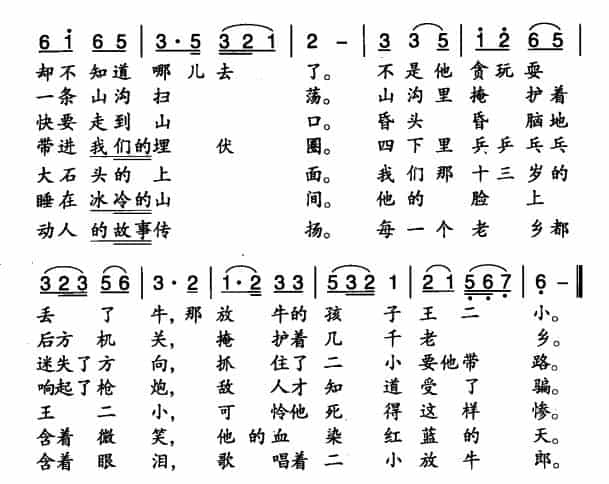 6 1 6 5 | 3 · 5 3 2 1 | 2 - | 3 3 5 | 1 2 6 5 |
却不知道哪儿去了。不是他贪玩耍
一条山沟扫荡。山沟里掩护着
快要走到山口。昏头昏脑地
带进我们的埋伏圈。四下里乒乒乓乓
大石头的上面。我们那十三岁的
睡在冰冷的山间。他的脸上
动人的故事传扬。每一个老乡都
3 2 3 5 6 | 3 · 2 | 1 · 2 3 3 | 5 3 2 1 | 2 1 5 6 7 | 6 - ‖
丢了牛,那放牛的孩子王二小。
后方机关,掩护着几千老乡。
迷失了方向,抓住了二小要他带路。
响起了枪炮,敌人才知道受了骗。
王二小,可怜他死得这样惨。
含着微笑,他的血染红蓝的天。
含着眼泪,歌唱着二小放牛郎。